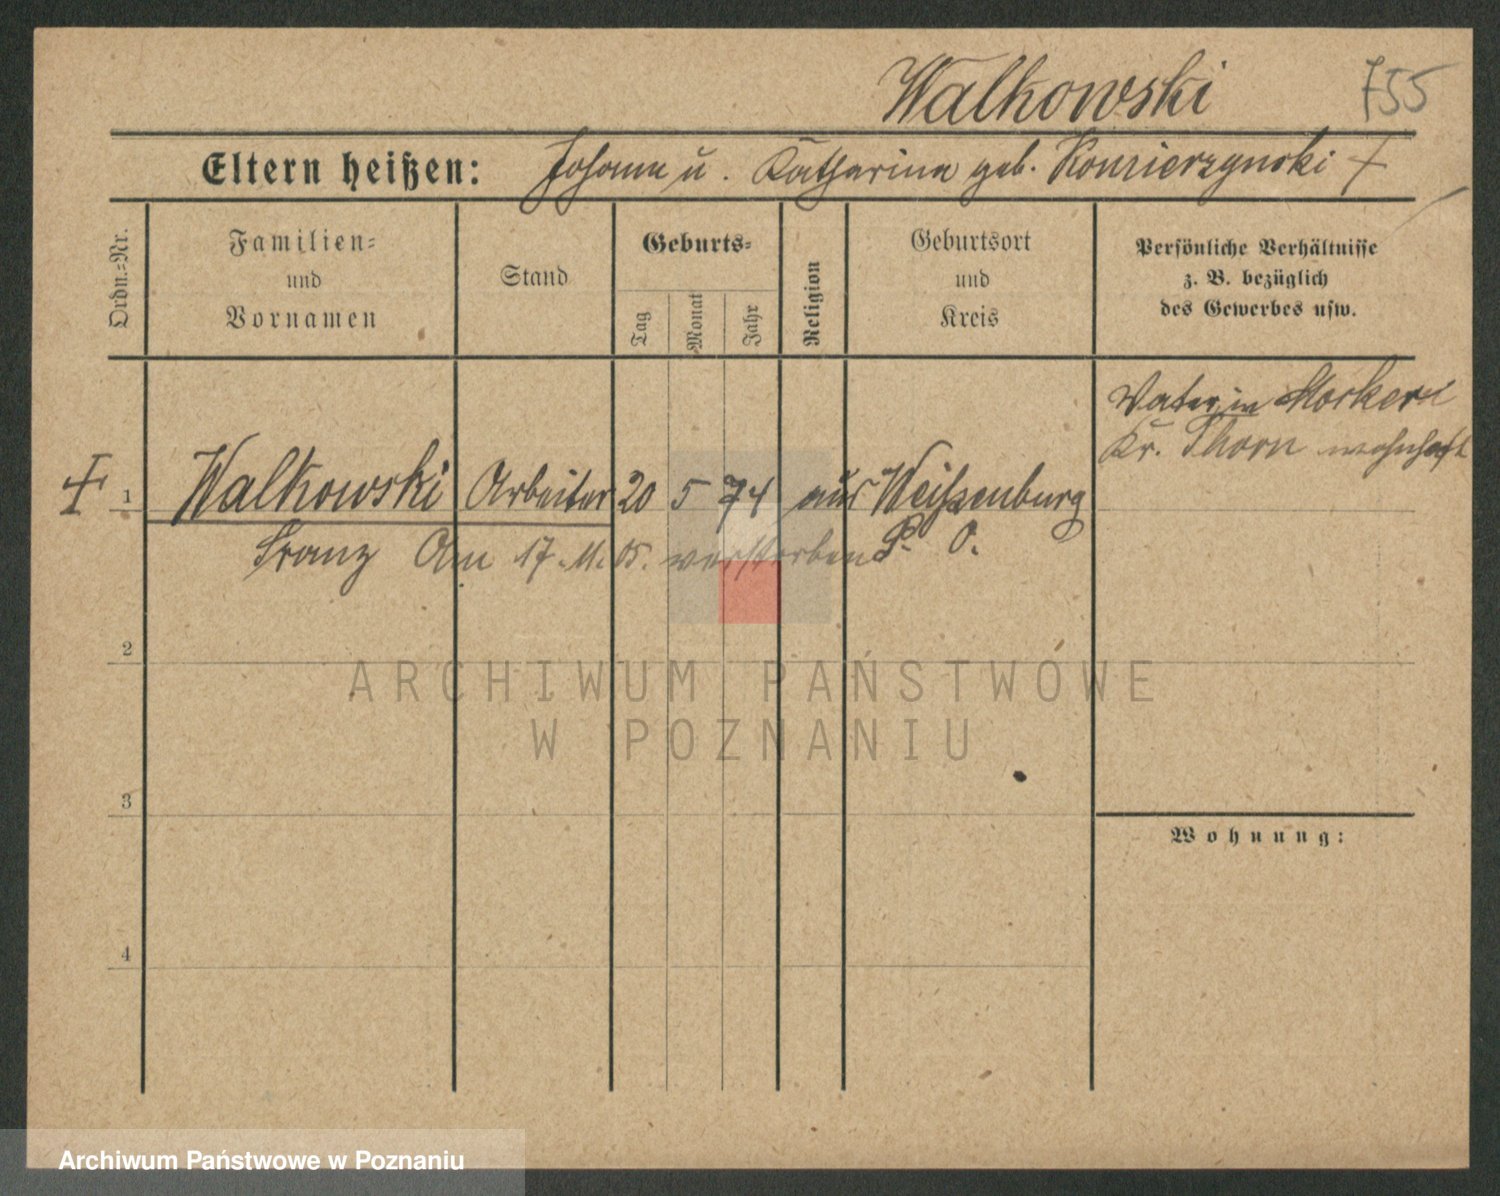 Walkowski 755
Eltern heißen: Johann u. Katharina geb. Konierzynski †
Ordn.=Nr.
Familien=
und
Vornamen
Stand
Geburts=
Tag
Monat
Jahr
Religion
Geburtsort
und
Kreis
Persönliche Verhältnisse
z. B. bezüglich
des Gewerbes usw.
Vater in Mocker
Kr. Thorn wohnhaft
† 1 Walkowski Arbeiter 20 5 74 aus Weißenburg
Franz Am 17. 11. 05. verstorben P. O.
2
3
4
Wohnung:
ARCHIWUM PAŃSTWOWE
W POZNANIU
Archiwum Państwowe w Poznaniu